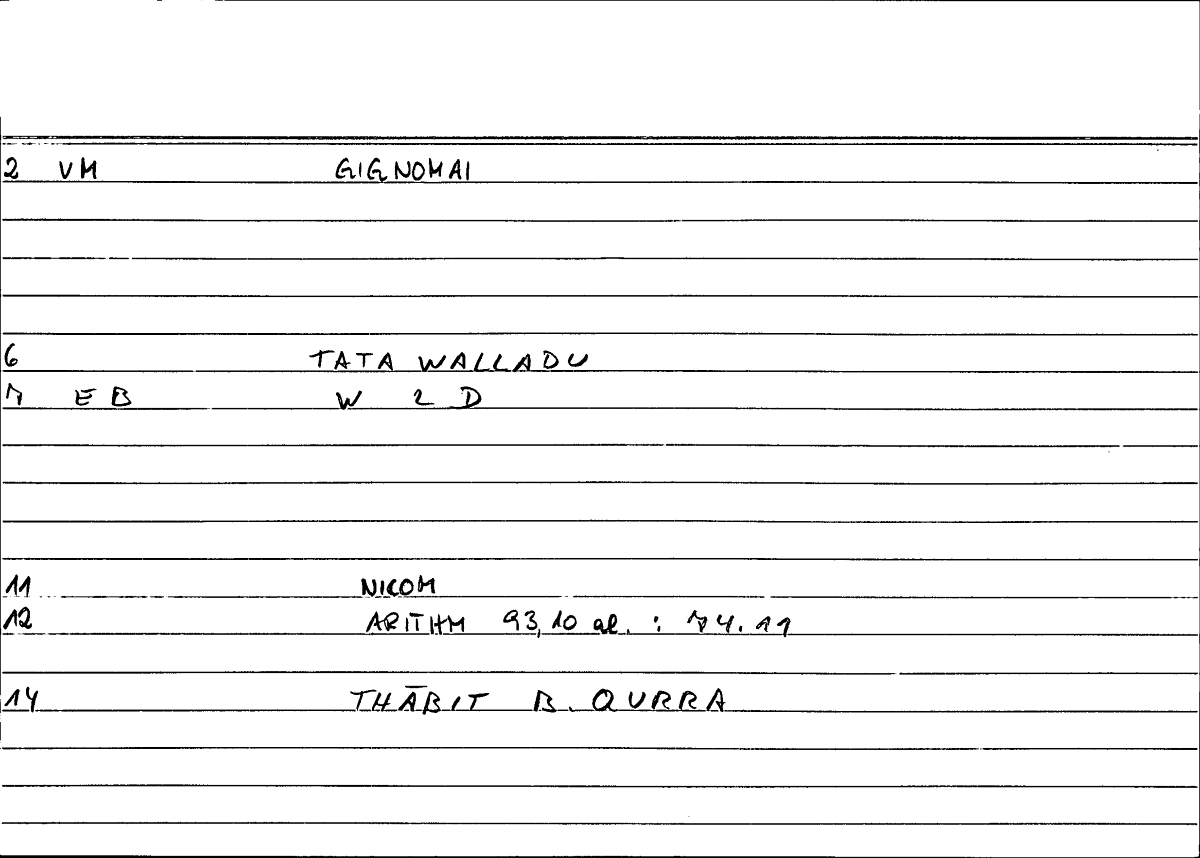 2 VM GIGNOMAI
6 TATA WALLADU
7 EB W 2 D
11 NICOM
12 ARITHM 93,10 al. : 74.11
14 THĀBIT B. QURRA